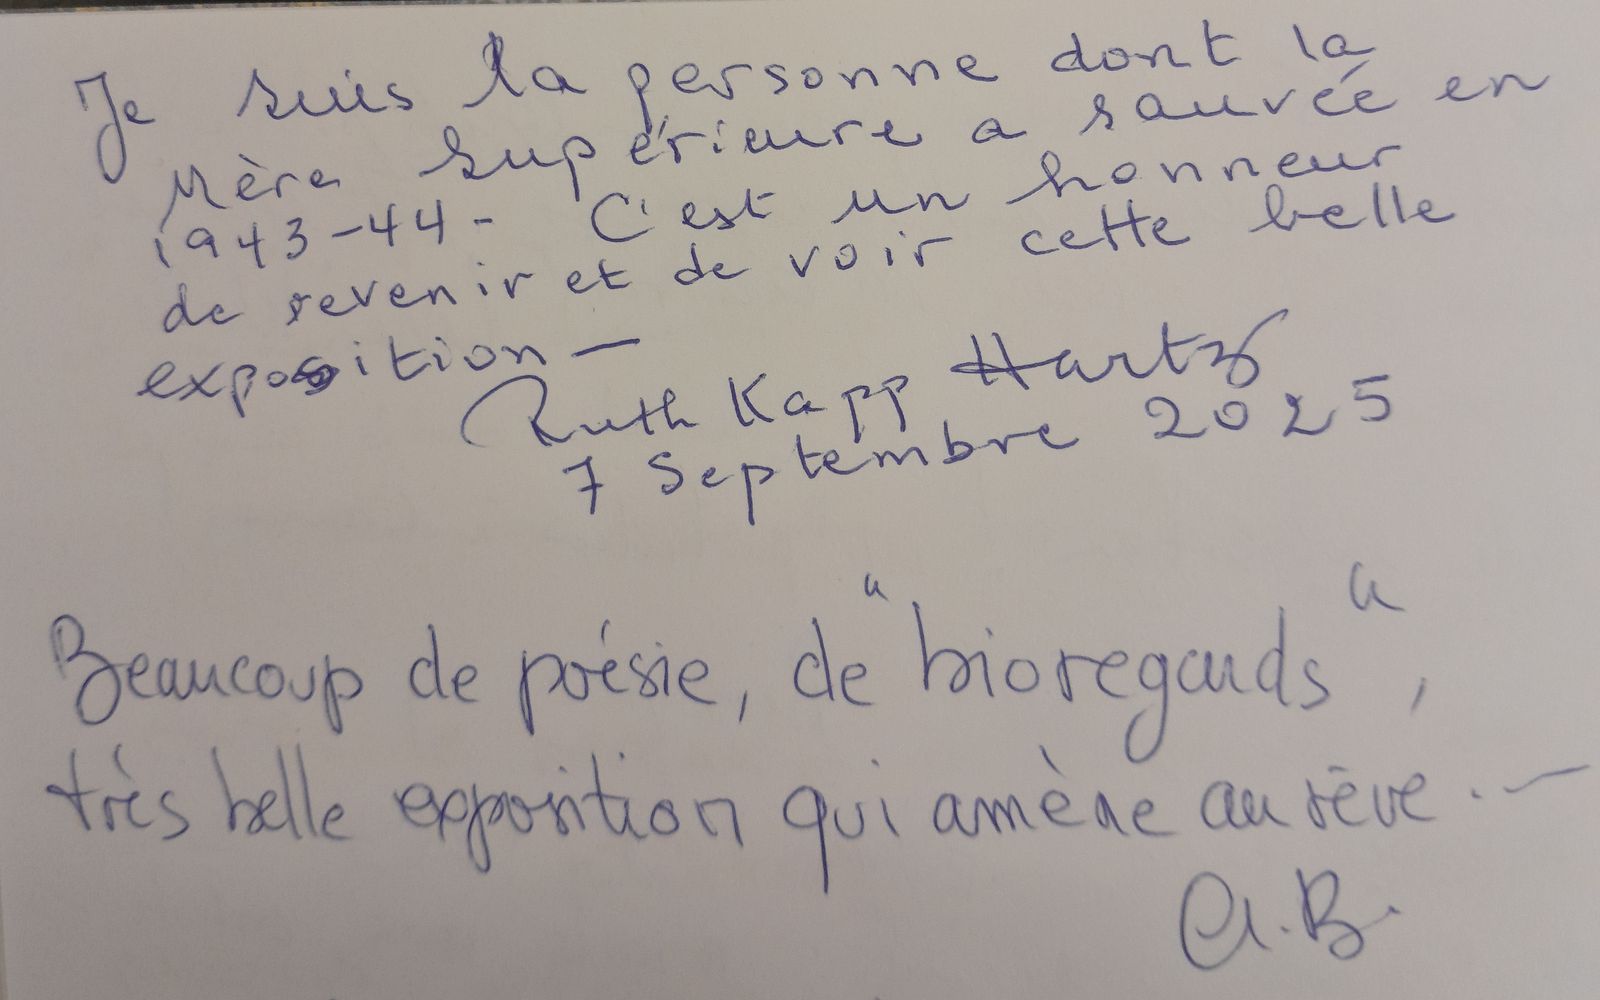 Je suis la personne dont la
Mère Supérieure a sauvée en
1943-44 - C'est un honneur
de revenir et de voir cette belle
exposition —
Ruth Kapp Hartz
7 Septembre 2025
Beaucoup de poésie, de "bioregards",
très belle exposition qui amène au rêve . —
A.B.